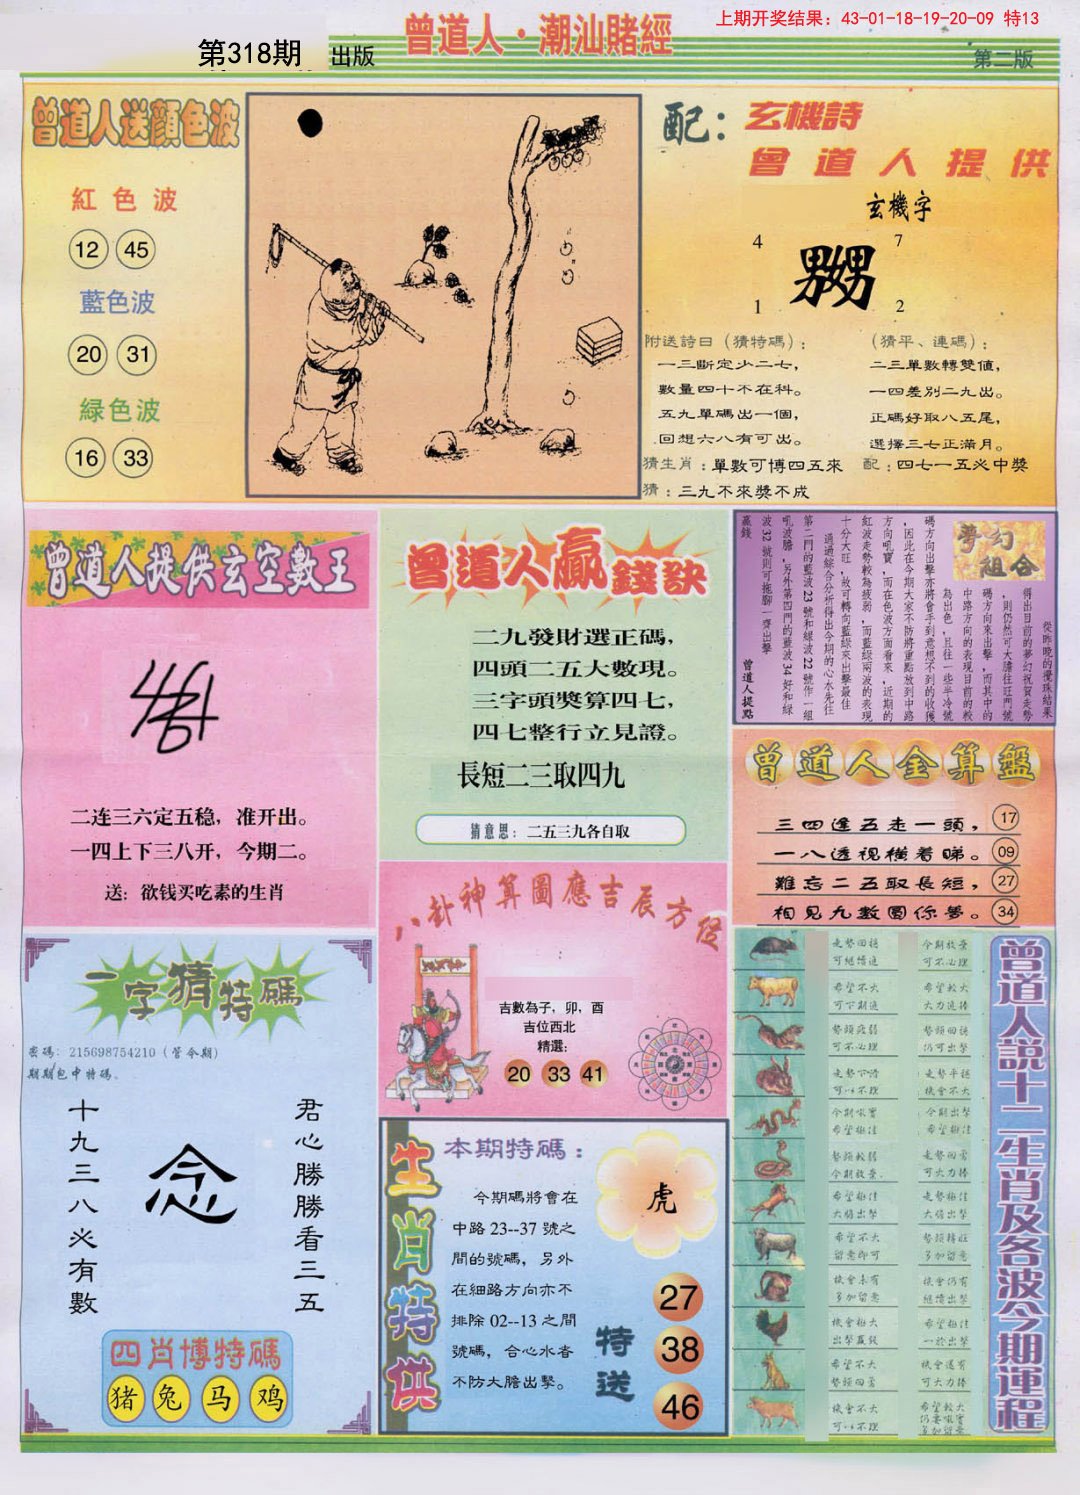 上期开奖结果：43-01-18-19-20-09 特13
曾道人·潮汕賭經
第318期 出版
第二版
曾道人送顔色波
紅色波
12 45
藍色波
20 31
緑色波
16 33
配：玄機詩
曾道人提供
玄機字
4 7
嬲
1 2
附送詩曰（猜特碼）：
一三斷定少二七，
數量四十不在科。
五九單碼出一個，
回想六八有可出。
（猜平、連碼）：
二三單數轉雙値，
一四差別二九出。
正碼好取八五尾，
選擇三七正滿月。
猜生肖：單數可博四五來
配：四七一五必中獎
猜：三九不來獎不成
曾道人提供玄空數王
二连三六定五稳，准开出。
一四上下三八开，今期二。
送：欲钱买吃素的生肖
曾道人贏錢訣
二九發財選正碼，
四頭二五大數現。
三字頭獎算四七，
四七整行立見證。
長短二三取四九
猜意思：二五三九各自取
夢幻組合
從昨晚的攪珠結果
得出目前的夢幻祝賀走勢
，則仍然可大膽往旺門號
碼方向來出擊，而其中的
中路方向的表現目前的較
為出色，且往一些半冷號
碼方向出擊亦將會手到意想不到的收獲
，因此在今期大家不防將重點放到中路
方向吼寶，而在色波方面看來，近期的
紅波走勢較為疲弱，而藍綠兩波的表現
十分大旺，故可轉向藍綠來出擊最佳
通過綜合分析得出今期的心水先往
第二門的藍波23號和綠波22號作一組
吼波膽，另外第四門的藍波34好和綠
波32號則可拖腳一齊出擊
贏錢
曾道人提點
曾道人金算盤
三四逢五走一頭， 17
一八透視橫看睇。 09
難忘二五取長短， 27
相見九數圓你夢。 34
八卦神算圖應吉辰方位
吉數為子，卯，酉
吉位西北
精選：
20 33 41
一字猜特碼
密碼：215698754210（管今期）
期期包中特碼、
君心勝勝看三五
念
十九三八必有數
四肖博特碼
猪 兔 马 鸡
生肖特供
本期特碼：
今期碼將會在
中路23--37 號之
間的號碼，另外
在細路方向亦不
排除02--13之間
號碼，合心水者
不防大膽出擊。
虎
特送
27
38
46
曾道人說十二生肖及各波今期運程
走勢回穩 今期放棄
可繼續追 可不必理
希望不大 希望較大
可下期追 大力追捧
勢頭疲弱 勢頭回穩
可不必理 仍可出擊
走勢下滑 走勢平穩
可以不理 機會不大
今期吼實 今期出擊
希望極佳 希望極佳
勢頭較弱 走勢回勇
今期放棄、 可大力捧
希望極佳 走勢極佳
大膽出擊 大膽出擊
希望不大 勢頭轉旺
留意即可 多加留意
機會未有 機會仍有
多加留意 繼續出擊
機會極大 希望極佳
出擊贏錢 一於出擊
希望不大 機會還有
勢頭回勇 可大力捧
機會不大 希望較大
可以不理 仍要吼實
多加留意